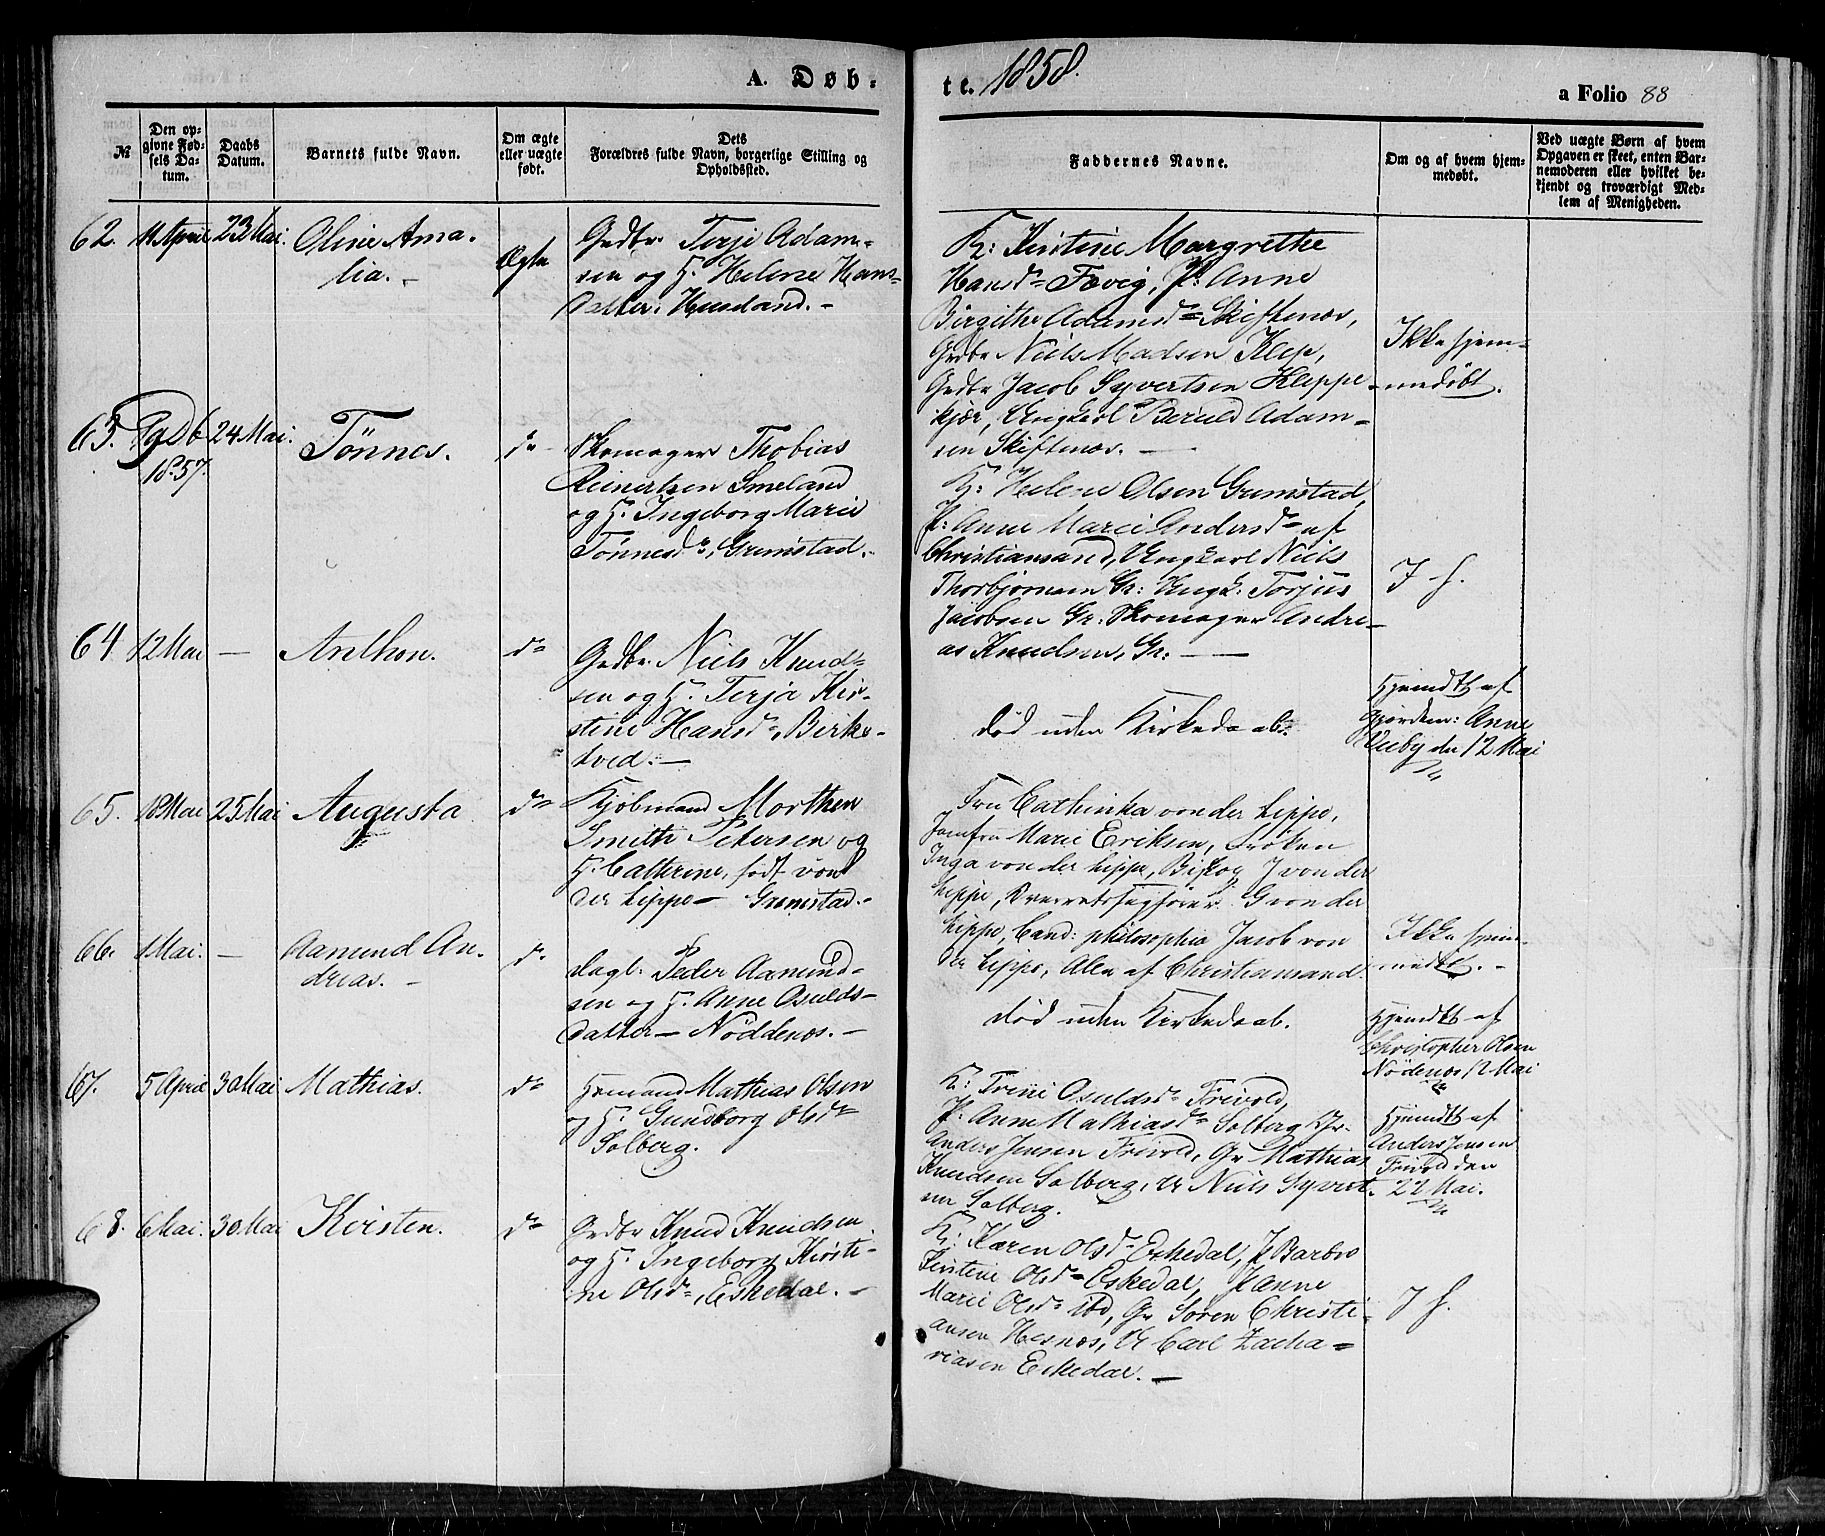 A. Døb-
te. 1858.
a Folio 88
№
Den opgivne Fødsels Datum.
Daabs Datum.
Barnets fulde Navn.
Om ægte eller uægte født.
Dets Forældres fulde Navn, borgerlige Stilling og Opholdssted.
Faddernes Navne.
Om og af hvem hjemmedøbt.
Ved uægte Børn af hvem Opgaven er skeet, enten Barnemoderen eller hvilket bekjendt og troværdigt Medlem af Menigheden.
62. 11 April 23 Mai. Oline Ama-
lia. -
Ægte
Grdbr. Terje Adam-
sen og H. Helene Hans-
datter. Huseland. -
K: Kirstine Margrethe
Hansd. Fævig, P: Anne
Birgithe Adamsd. Skiftenæs,
Grdbr Niels Madsen Klep,
Grdbr Jacob Syvertsen Kleppe-
kjær, Ungkarl Berulf Adam-
sen Skiftenæs. -
Ikke hjem-
medøbt.
63. 19 Db 24 Mai. Tønnes. do
1857.
Skomager Thobias
Reinertsen Smeland
og H. Ingeborg Marie
Tønnesd., Grimstad. -
K: Helene Olsen Grimstad,
P: Anne Marie Andersd. af
Christiansand, Ungkarl Niels
Thorbjørnsen Gr: Ungk: Torjus
Jacobsen Gr. Skomager Andre-
as Knudsen, Gr: -
I H.
64. 12 Mai - Anthon. do
Grdbr. Niels Knud-
sen og H. Terja Kir-
stine Hansd., Birke-
tved. -
død uden Kirkedaab.
Hjemdt af
Gjordem: Anne
den 12 Mai
65. 18 Mai 25 Mai Augusta do
Kjøbmand Morthen
Smith Petersen og
H. Cathrine, født von
der Lippe - Grimstad. -
Fru Cathinka von der Lippe,
Jomfru Marie Eriksen, Frøken
Inga von der Lippe, Biskop J von der
Lippe, Overretssagfører G von der
Lippe, Cand: philosophia Jacob von
der Lippe, Alle af Christiansand.
Ikke hjem-
medbt. -
66. 1 Mai. - Aamund An-
dreas. -
do
Dagl: Peder Aamund-
sen og H. Anne Osulds-
datter - Nøddenæs. -
død uden Kirkedaab.
Hjemdt af
Christopher Olsen
Nødenæs 12 Mai
67. 5 April 30 Mai Mathias. do
Mathias Olsen
og H. Gundborg Olsd.
Solberg.
K: Trine Osuldsd. Frivold,
P: Anne Mathiasd. Solberg Gr.
Anders Jensen Frivold, Gr Mathias
Knudsen Solberg, U Niels Syvert-
sen Solberg.
Hjemdt af
Anders Jensen
Frivold den
22 Mai.
68. 6 Mai. 30 Mai Kirsten. do
Grdbr Knud Knudsen
og H. Ingeborg Kirsti-
ne Olsd., Eskedal. -
K: Karen Olsd. Eskedal, P Barbro
Kirstine Olsd. Eskedal, P Anne
Marie Olsd. ibd, Gr Søren Christi-
ansen Hesnæs, U Carl Zacha-
riasen Eskedal. -
I H.